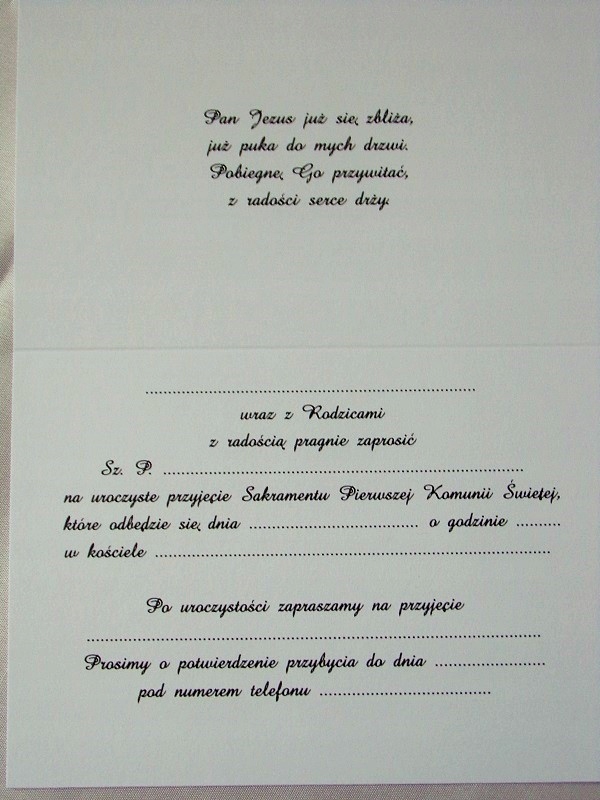 Pan Jezus już się zbliża,
już puka do mych drzwi.
Pobiegnę Go przywitać,
z radości serce drży.
......................................................................
wraz z Rodzicami
z radością pragnie zaprosić
Sz. P. ..............................................................................
na uroczyste przyjęcie Sakramentu Pierwszej Komunii Świętej,
które odbędzie się dnia ..................................... o godzinie ..........
w kościele .....................................................................................
Po uroczystości zapraszamy na przyjęcie
..................................................................................................
Prosimy o potwierdzenie przybycia do dnia ........................
pod numerem telefonu .....................................